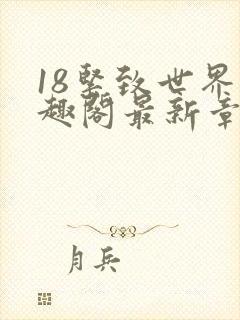 18坚致世界
趣阁最新章
月兵